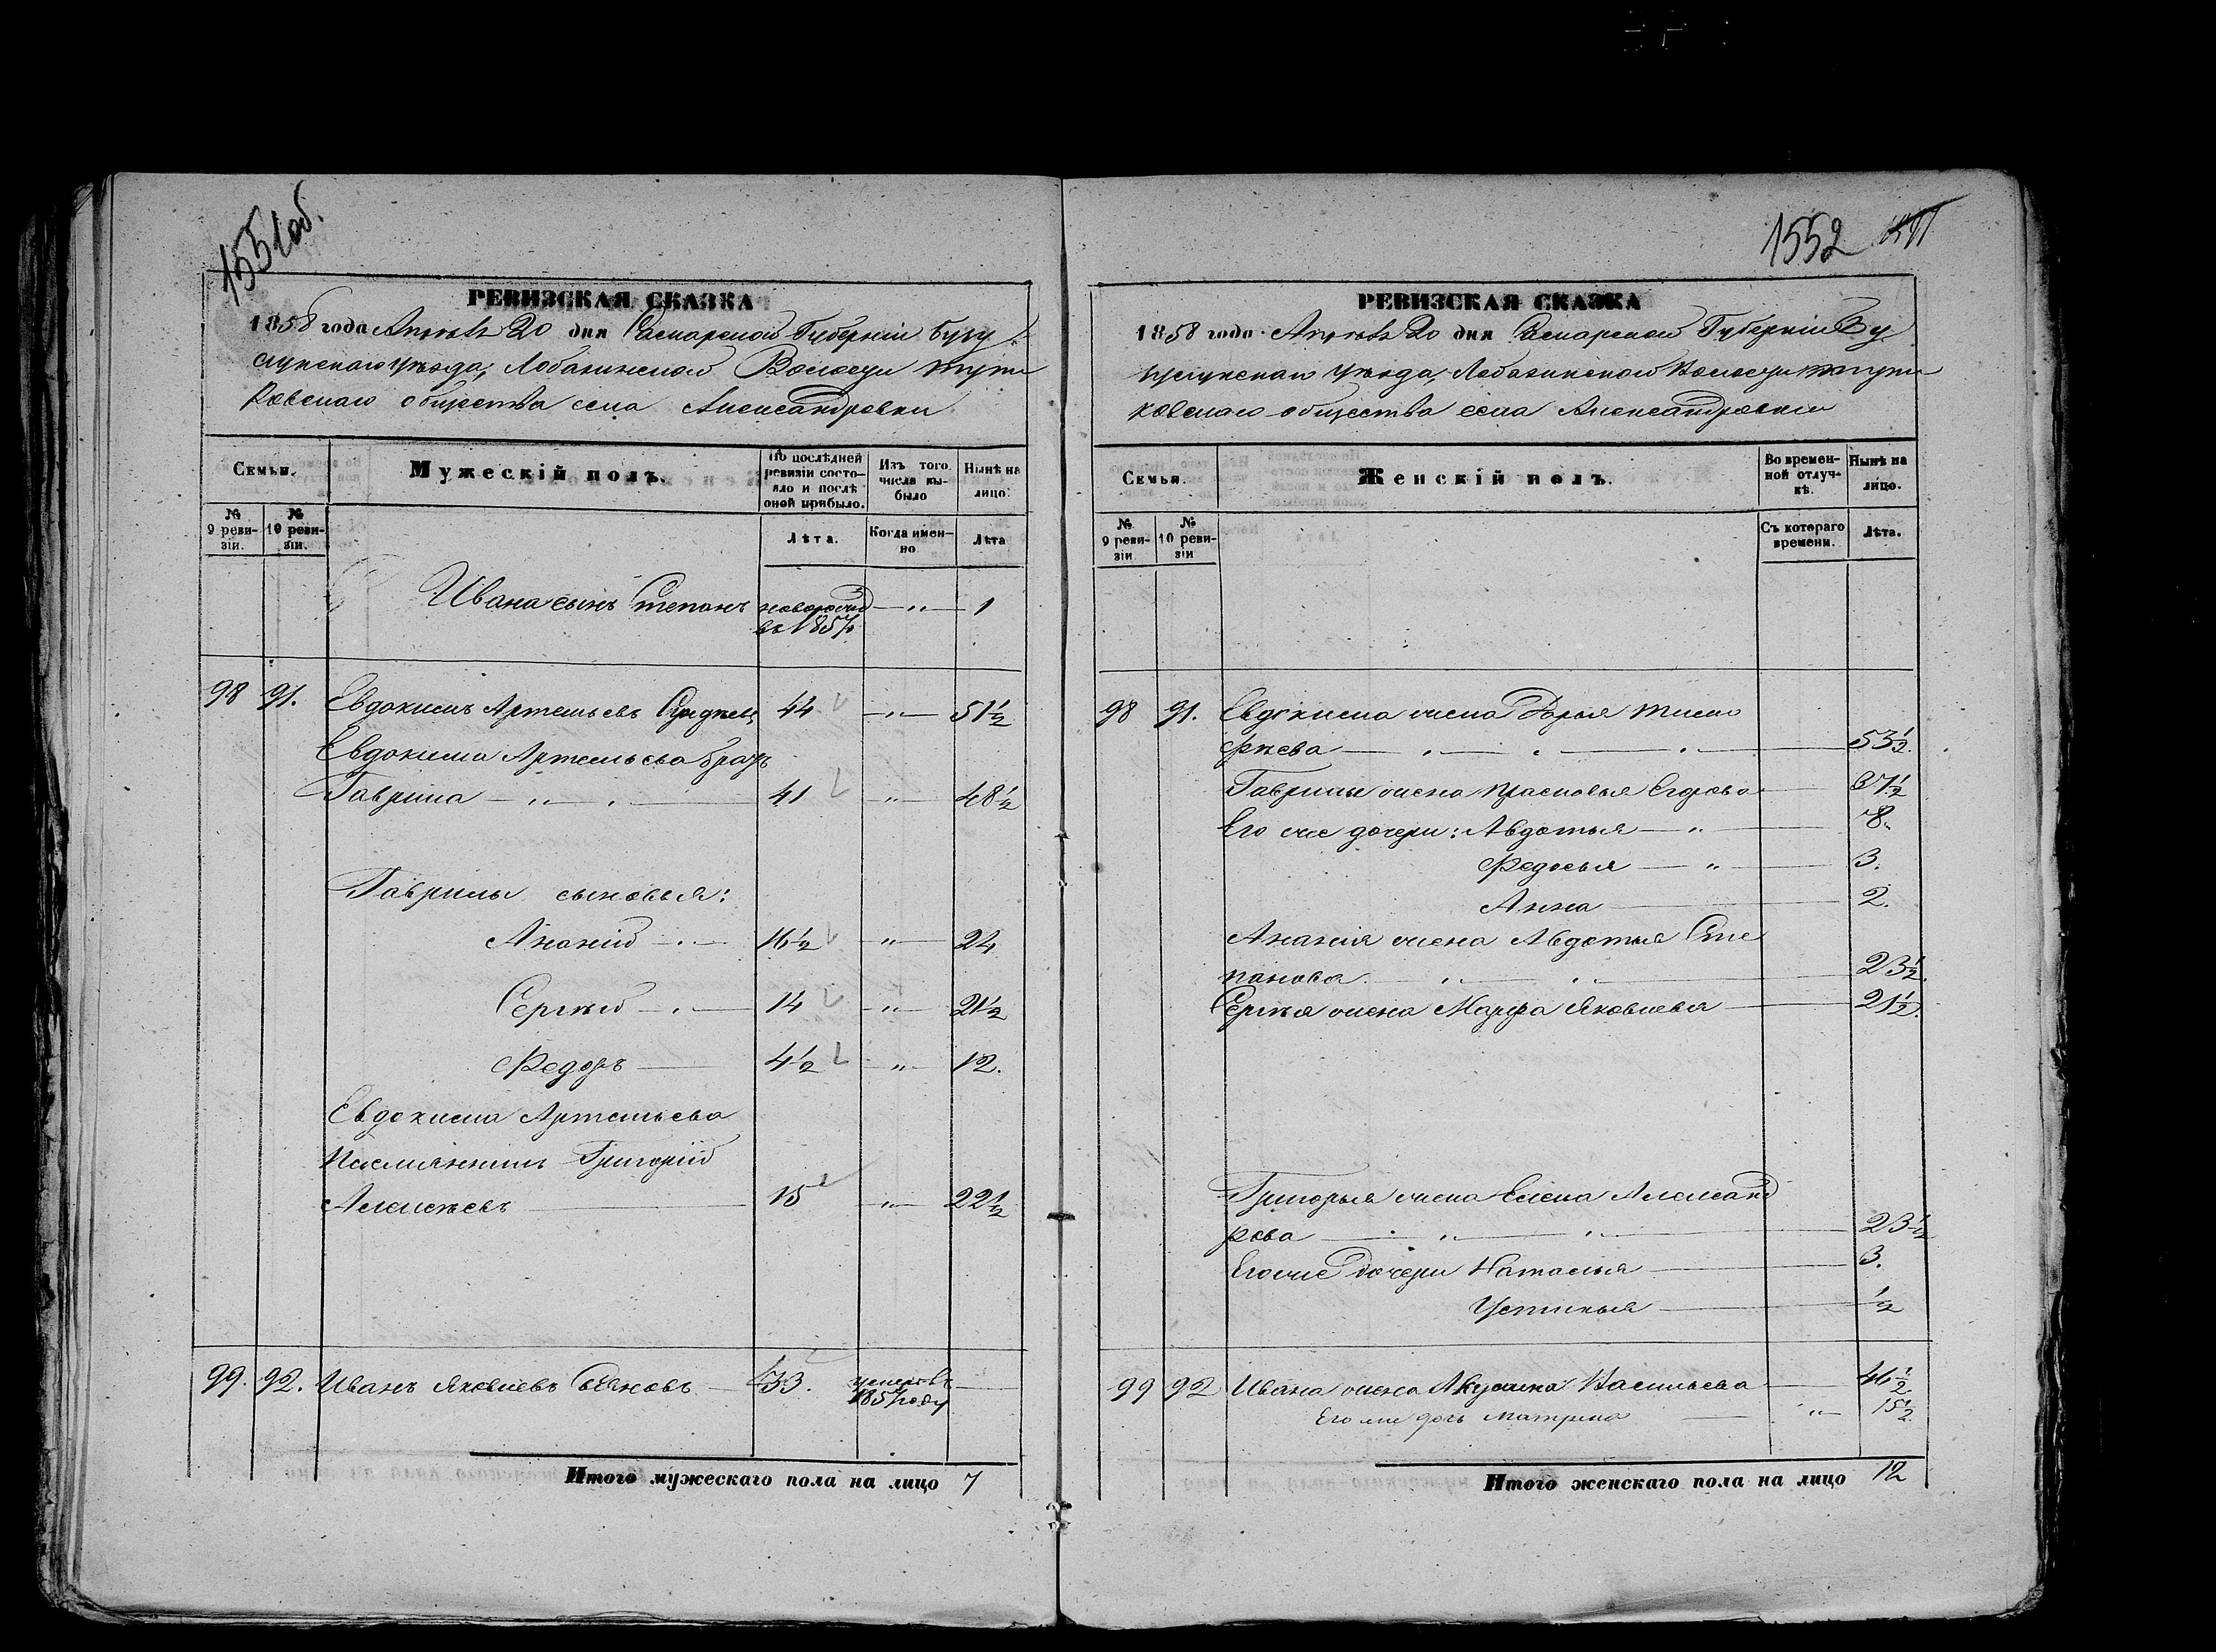 1551об.
РЕВИЗСКАЯ СКАЗКА
1858 года Апрѣля 20 дня Самарской Губерніи Бугу
сунскаго уѣзда, Лобазинской Волости
ковскаго общества села Александровки
Семьи.
Мужескій полъ.
По послѣдней ревизіи состояло и послѣ оной прибыло.
Изъ того числа выбыло
Нынѣ на лицо.
№ 9 ревизіи.
№ 10 ревизіи.
Лѣта.
Когда именно
Лѣта
Ивана сынъ Степанъ новорожд — „ — 1
въ 1857
98 91. Евдокимъ Артемьевъ 44 — „ — 51½
Евдокима Артемьева братъ
Гаврила — „ — 41 „ 48½
Гаврилы сыновья:
Ананій — 16½ „ 24
Сергѣй — 14 „ 21½
Федоръ — 4½ „ 12.
Евдокима Артемьева
племянникъ Григорій
Алексѣевъ — 15 „ 22½
99. 92. Иванъ Яковлевъ — 33. умеръ въ —
1857 году
Итого мужескаго пола на лицо 7
1552
РЕВИЗСКАЯ СКАЗКА
1858 года Апрѣля 20 дня Самарской Губерніи Бу
гусунскаго уѣзда, Лобазинской Волости
ковскаго общества села Александровки
Семьи.
Женскій полъ.
Во временной отлучкѣ.
Нынѣ на лицо.
№ 9 ревизіи
№ 10 ревизіи
Съ котораго времени.
Лѣта.
98 91. Евдокима жена Дарья Тимо
фѣева — 53½.
Гаврилы жена Прасковья Егорова — 37½
Его же дочери: Авдотья — „ — 8.
Федосья — „ — 3.
Анна — 2.
Ананія жена Авдотья Сте
панова. — 23½.
Сергѣя жена Марфа Яковлева — 21½.
Григорья жена Елена Александ
рова — 23½
Его же дочери Наталья — 3.
Устинья — ½
99 92 Ивана жена Акулина Васильева — 46½.
Его же дочь Матрена — „ — 15½.
Итого женскаго пола на лицо 12